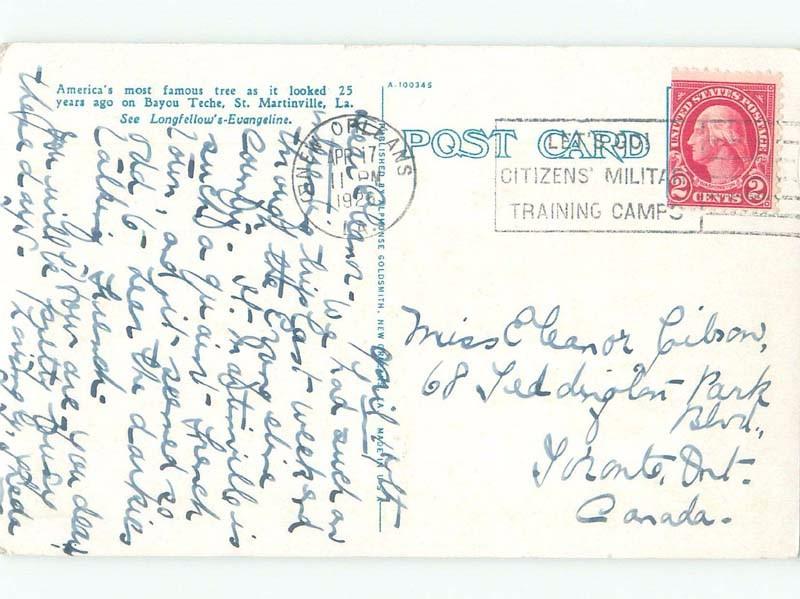 America's most famous tree as it looked 25
years ago on Bayou Teche, St. Martinville, La.
See Longfellow's-Evangeline.
A-100345
POST CARD
PUBLISHED BY ALPHONSE GOLDSMITH, NEW ORLEANS, LA.
MADE IN U.S.A.
NEW ORLEANS
APR 17
11 PM
192
LA.
LET'S GO!
CITIZENS' MILITA
TRAINING CAMPS
UNITED STATES POSTAGE
WASHINGTON
2 CENTS 2
Miss Eleanor Gibson,
68 Teddington Park
Blvd.,
Toronto, Ont.
Canada.
April
Dear Eleanor - We had such an
trip last weekend
through the Evangeline
Country. St. Martinville is
such a quaint French
Town, and it seemed so
odd to hear the darkies
talking French.
you will
these days.